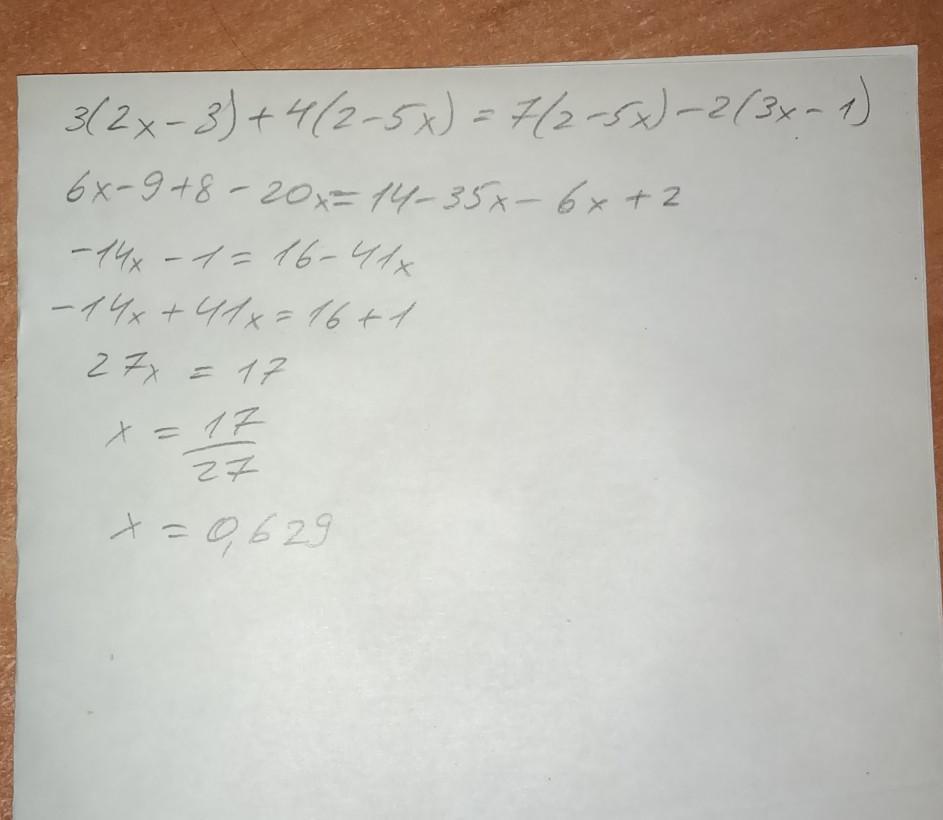 3(2x-3)+4(2-5x)=7(2-5x)-2(3x-1)
6x-9+8-20x=14-35x-6x+2
-14x-1=16-41x
-14x+41x=16+1
27x=17
x=17/27
x=0,629